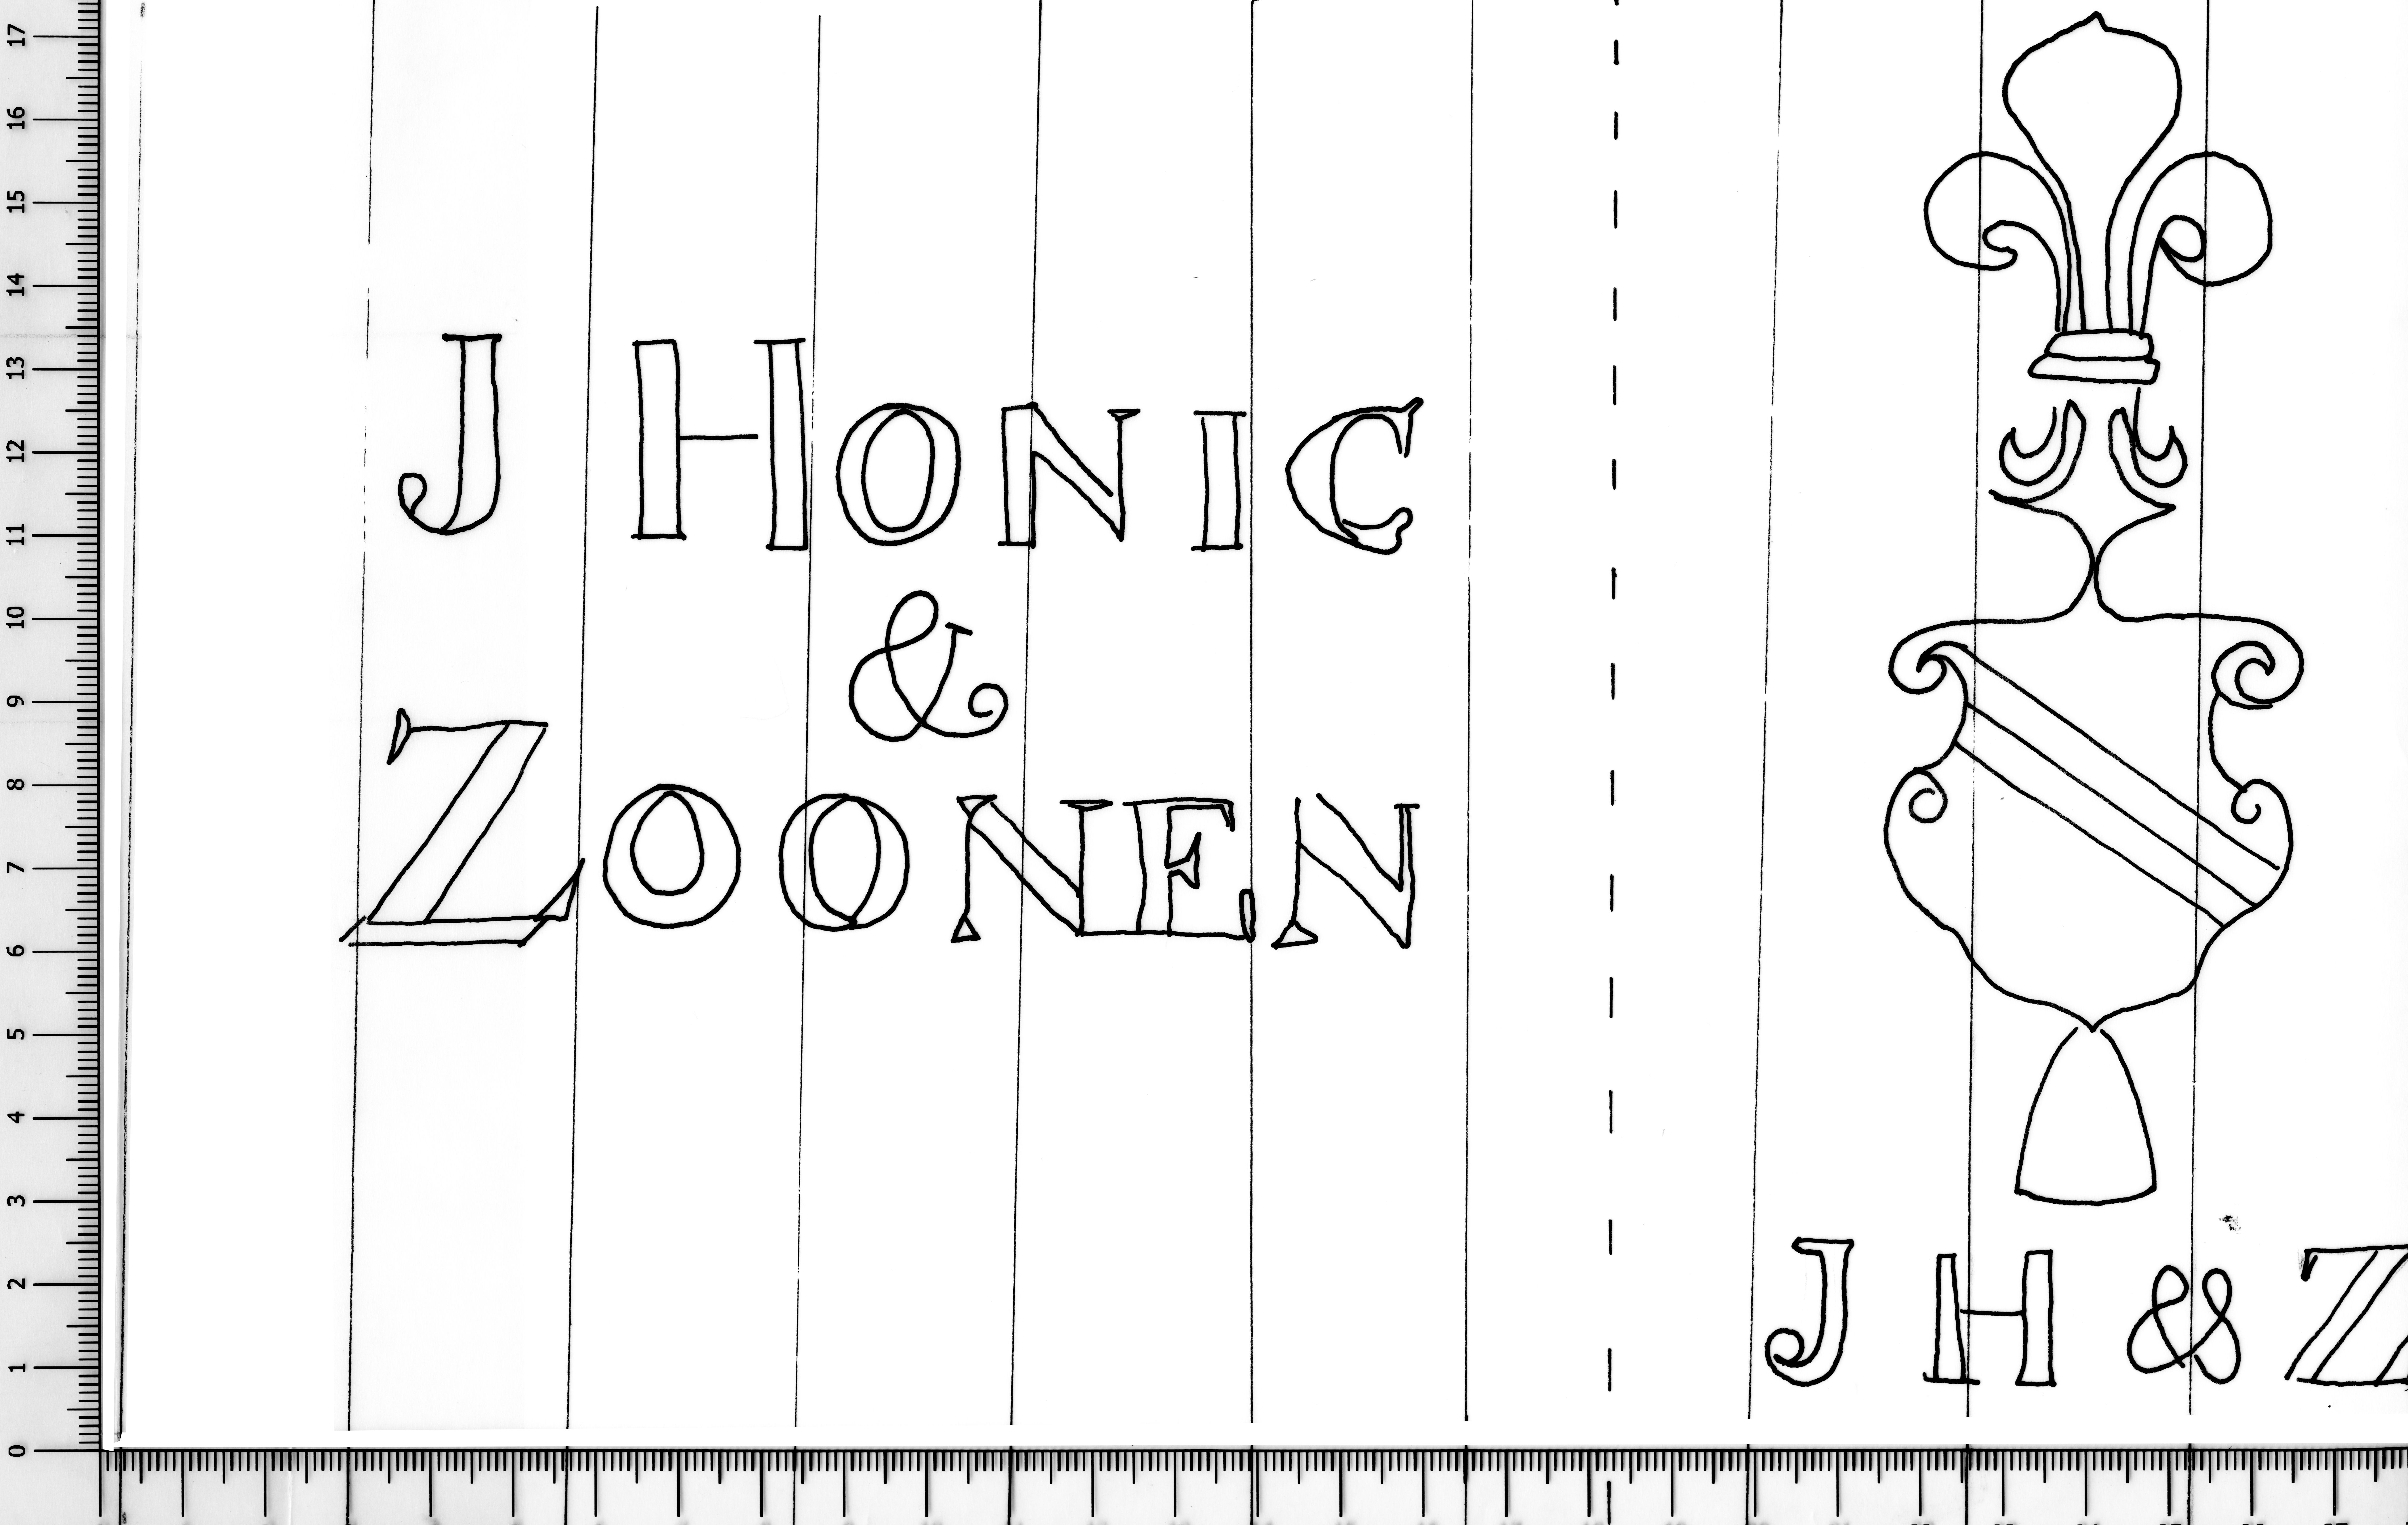 J HONIG
&
ZOONEN
J H & Z
17
16
15
14
13
12
11
10
9
8
7
6
5
4
3
2
1
0